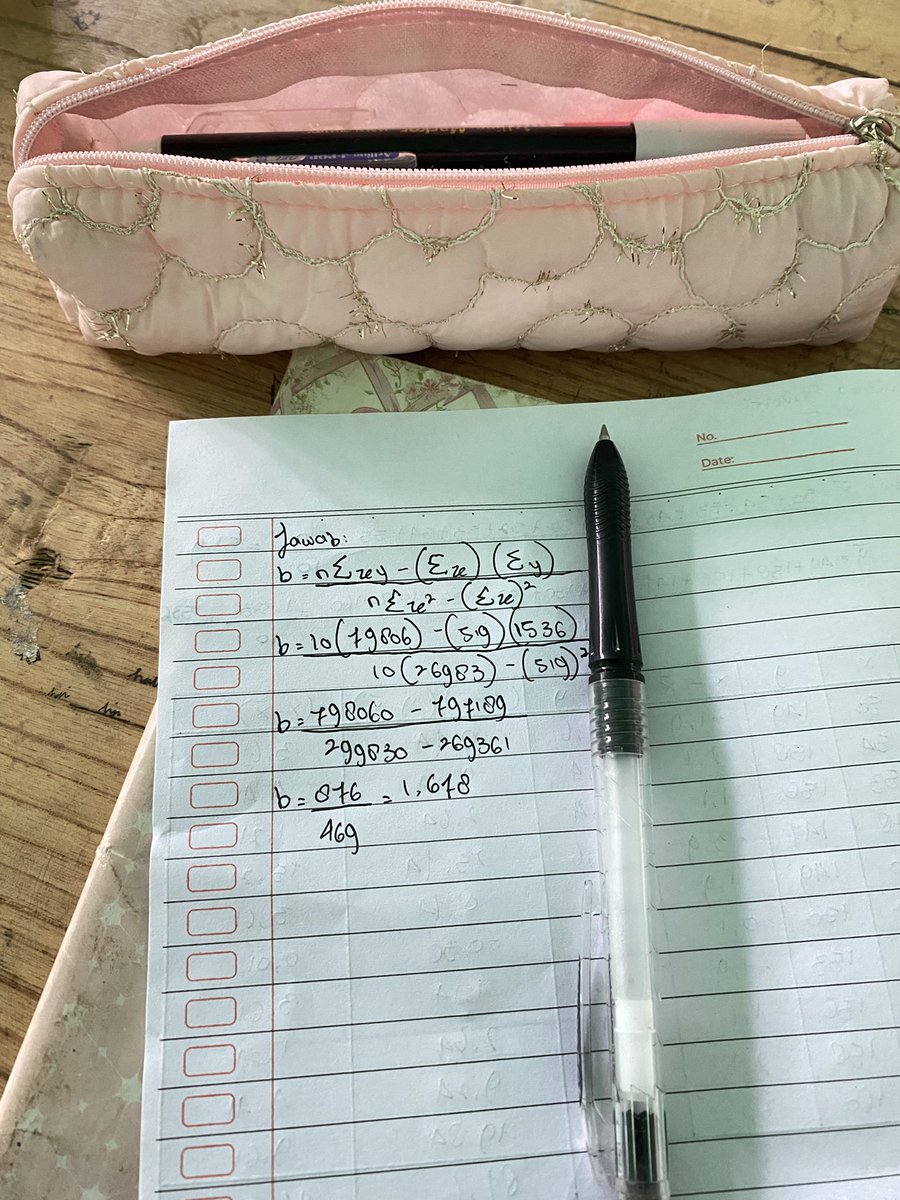 Marker
No.
Date:
Jawab:
b = nΣxy - (Σx) (Σy)
nΣx² - (Σx)²
b = 10(79806) - (519)(1536)
10(26983) - (519)²
b = 798060 - 797189
299830 - 269361
b = 876 = 1,678
469